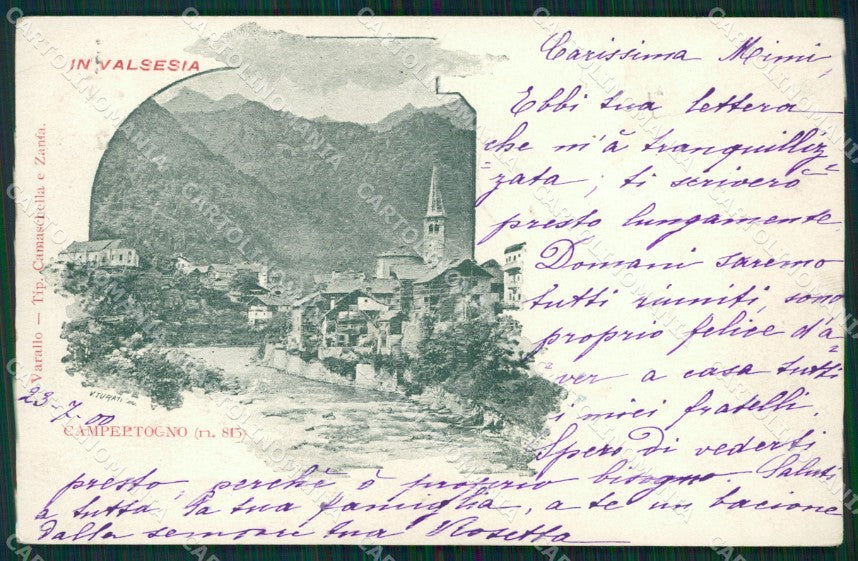 IN VALSESIA
Carissima Mimi,
Ebbi tua lettera
che m'à tranquilliz=
=zata; ti scriverò
presto lungamente
Domani saremo
tutti riuniti, sono
proprio felice d'a=
ver a casa tutti
i miei fratelli.
Spero di vederti
presto, perchè ò proprio bisogno. Saluti
a tutta la tua famiglia, a te un bacione
dalla sempre tua Rosetta
Varallo — Tip. Camaschella e Zanfa.
V. TURATI
23-7-00
CAMPERTOGNO (m. 815)
CARTOLINOMANIA